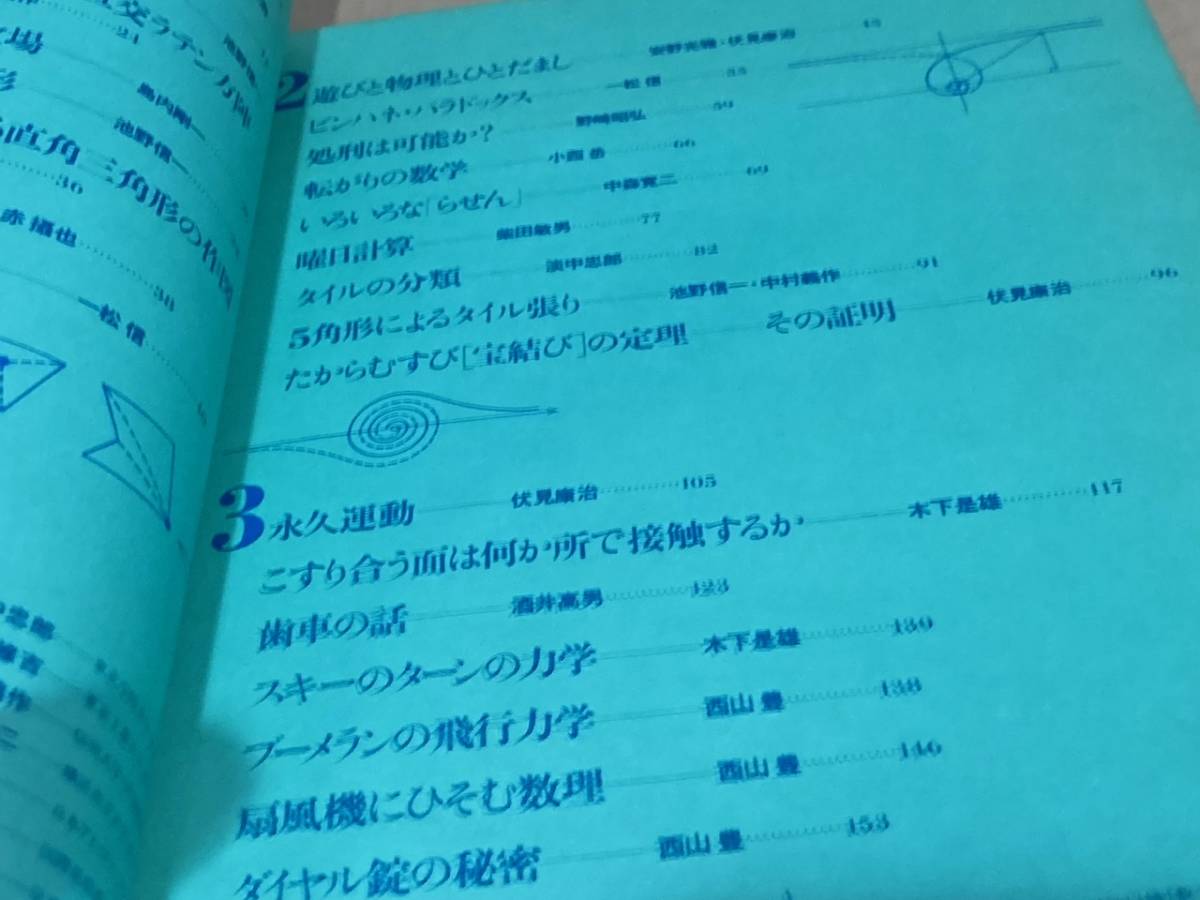 交ラテン方陣
21
島内剛一
池野信一
直角三角形の作図
36
赤攝也
38
一松信
2 遊びと物理とひとだまし 安野光雅・伏見康治
ピンハネ・パラドックス 一松信
処刑は可能か? 野崎昭弘 59
転がりの数学 小西岳 66
いろいろな「らせん」 中森寛二 69
曜日計算 柴田敏男 77
タイルの分類 淡中忠郎 82
5角形によるタイル張り 池野信一・中村義作 91
たからむすび[宝結び]の定理 その証明 伏見康治 96
3 永久運動 伏見康治 105
こすり合う面は何か所で接触するか 木下是雄 117
歯車の話 酒井高男 123
スキーのターンの力学 木下是雄 130
ブーメランの飛行力学 西山豊 138
扇風機にひそむ数理 西山豊 146
ダイヤル錠の秘密 西山豊 153
忠郎